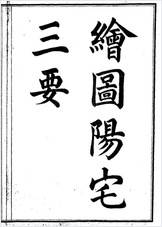 繪圖陽宅
三要